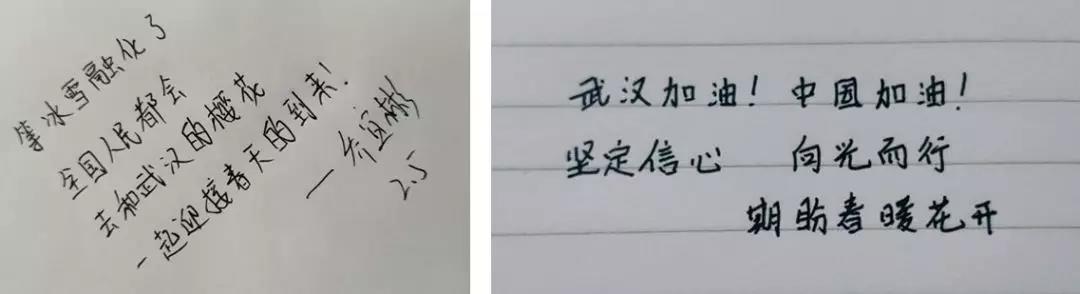 等冰雪融化了
全国人民都会
去和武汉的樱花
一起迎接春天的到来!
—乔宜彬
2.5
武汉加油! 中国加油!
坚定信心 向光而行
期盼春暖花开